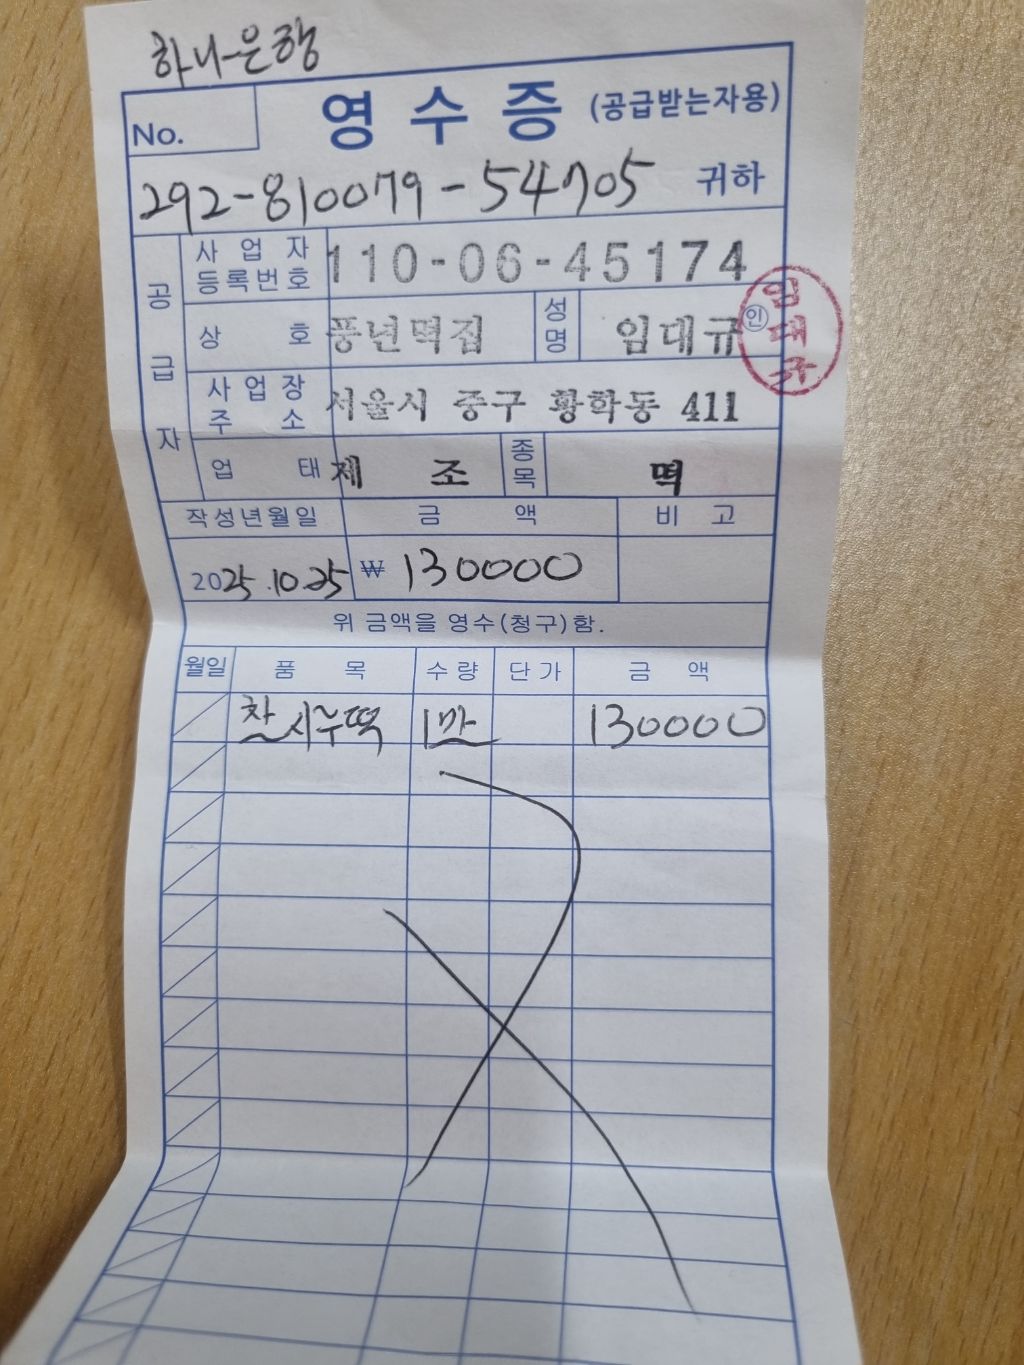 하나은행
No.
영수증 (공급받는자용)
292-810079-54705 귀하
공급자
사업자등록번호 110-06-45174
상호 풍년떡집 성명 임대규 ㊞
임대규
사업장주소 서울시 중구 황학동 411
업태 제조 종목 떡
작성년월일 금액 비고
2025.10.25 ₩ 130000
위 금액을 영수(청구)함.
월일 품목 수량 단가 금액
찰시루떡 1말 130000